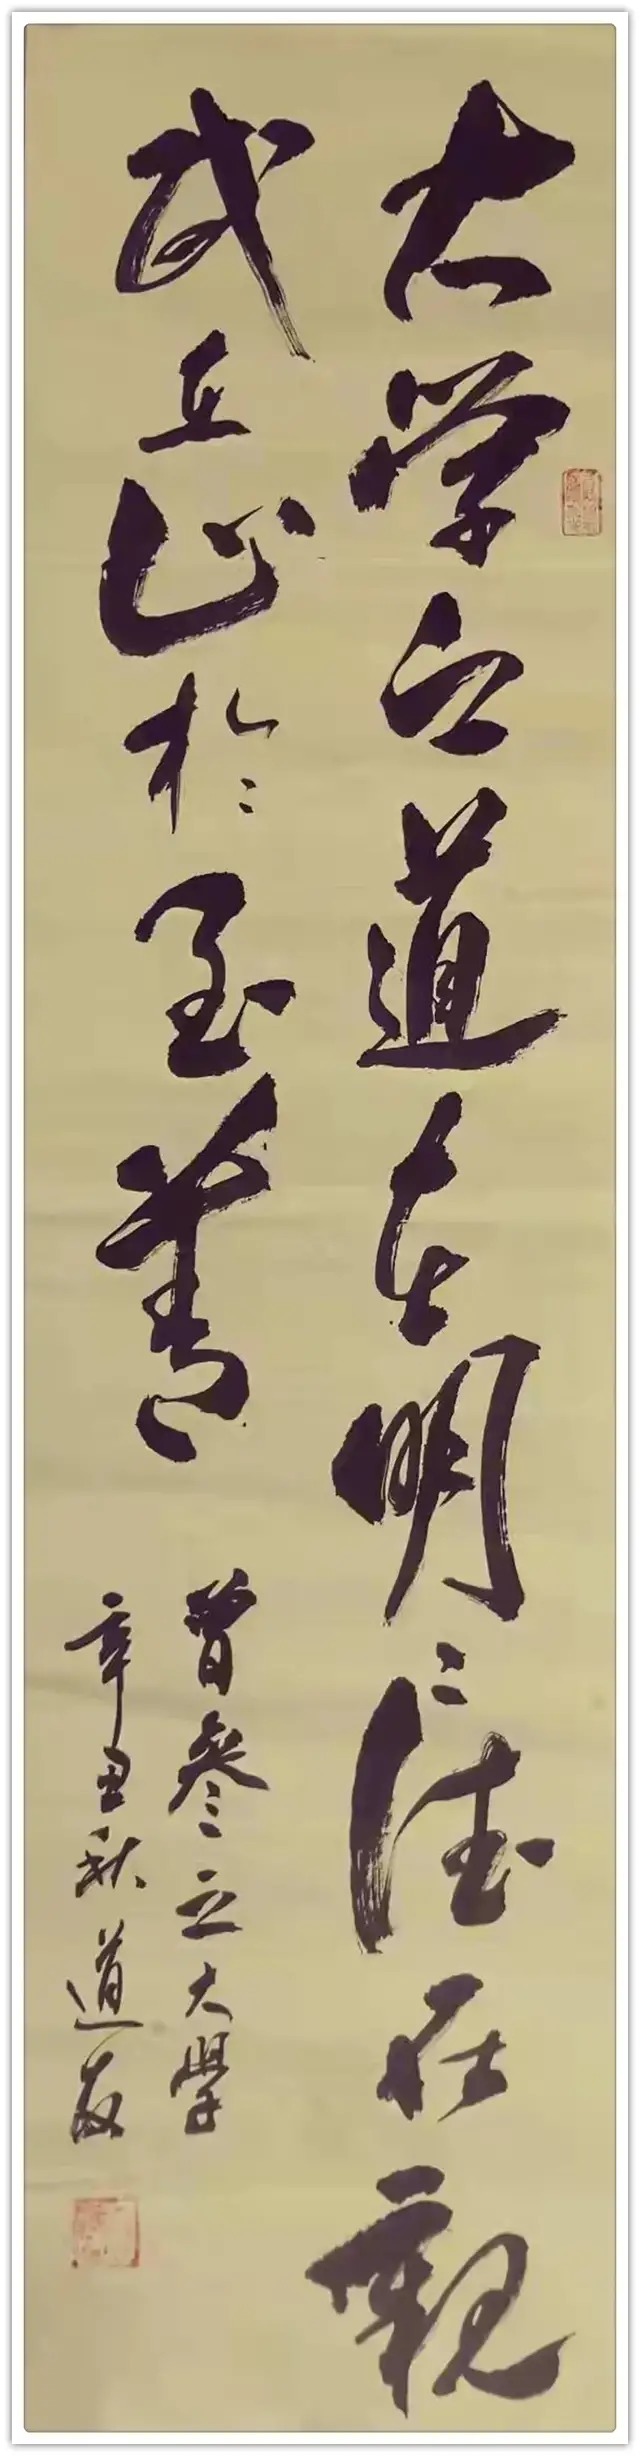 大学之道在明々德在親
民在止於至善
曾参之大學
辛丑秋道友